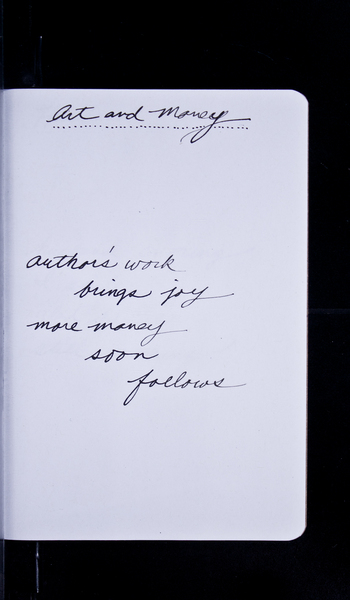 Art and Money
author's work
brings joy
more money
soon
follows